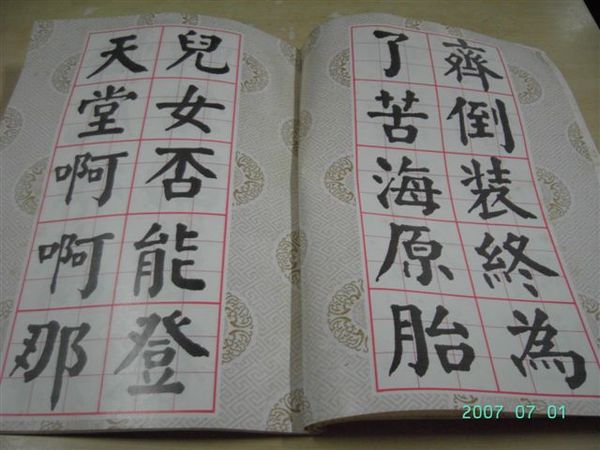 齊倒装終為
了苦海原胎
兒女否能登
天堂啊啊那
2007 07 01